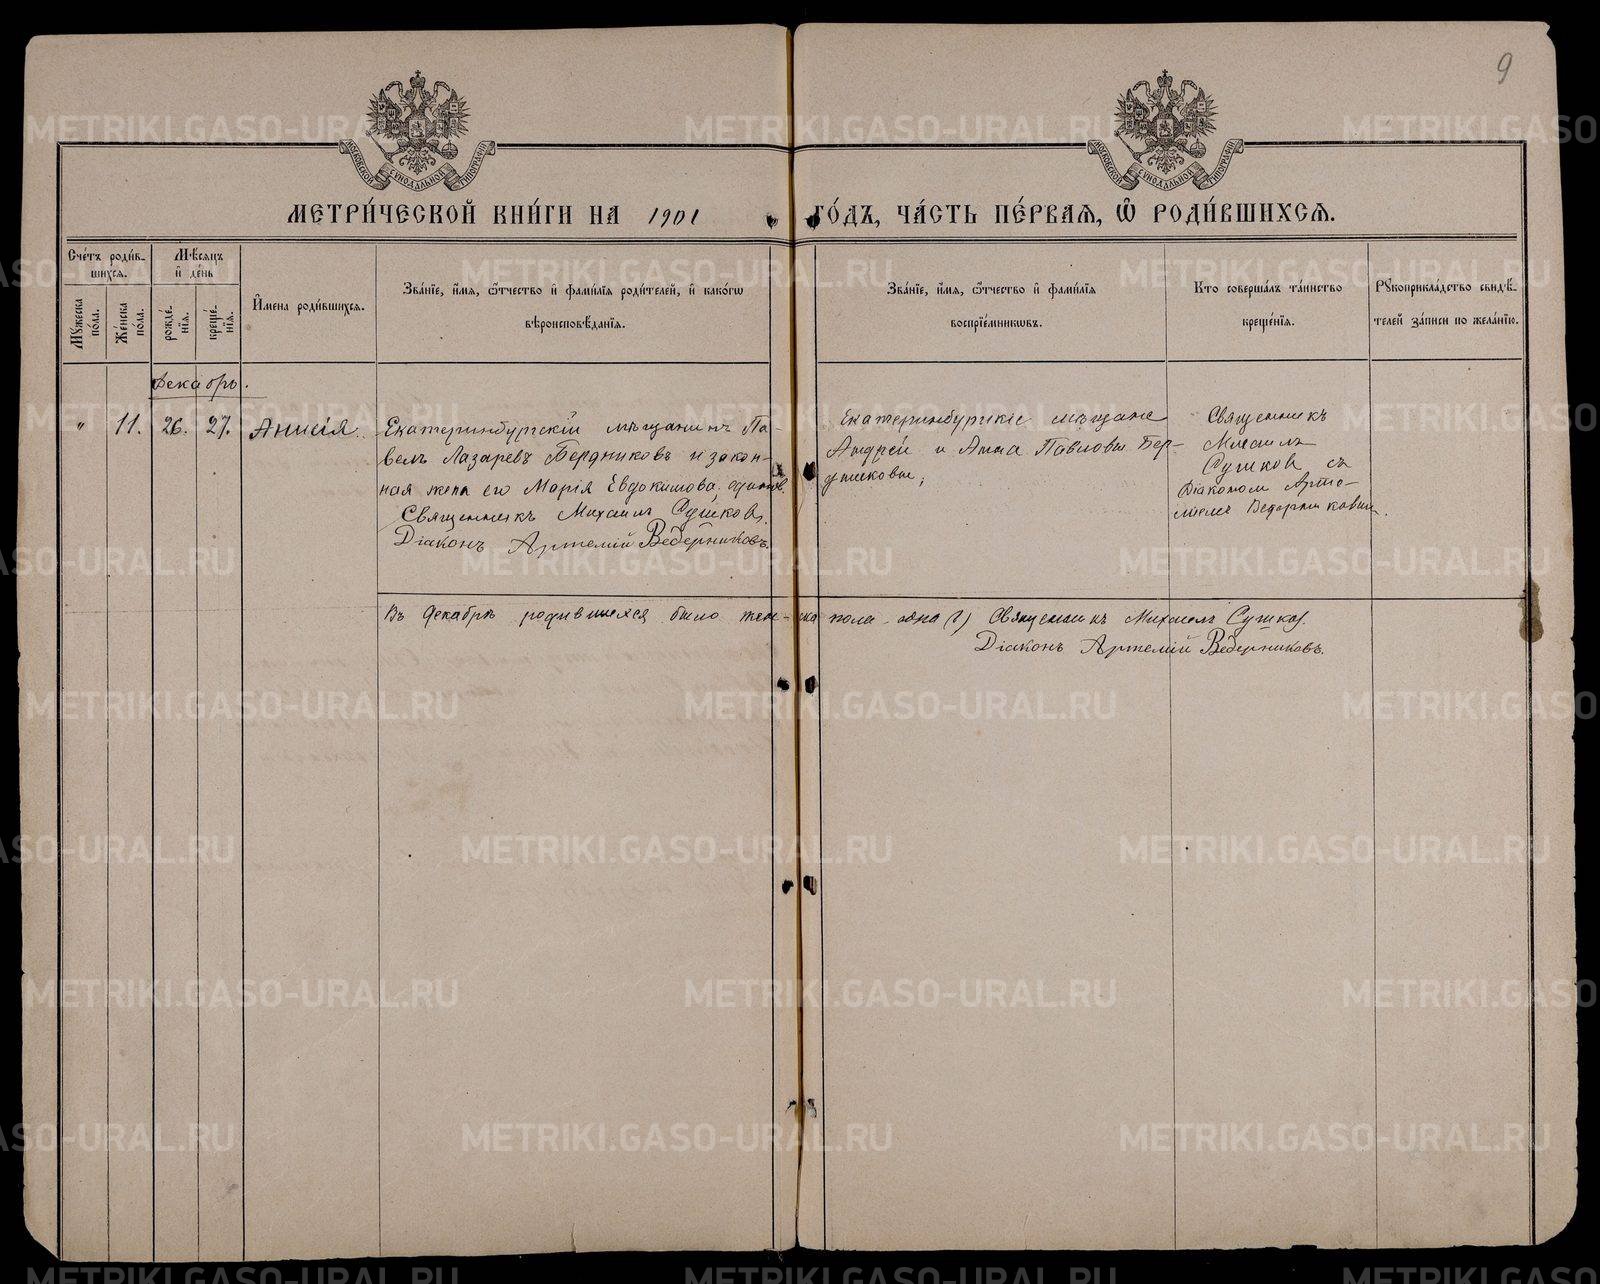 9
МОСКОВСКОЙ СѴНОДАЛЬНОЙ ТИПОГРАФІИ
МОСКОВСКОЙ СѴНОДАЛЬНОЙ ТИПОГРАФІИ
МЕТРИ́ЧЕСКОЙ КНИ́ГИ НА 1901 ГО́ДЪ, ЧА́СТЬ ПЕ́РВАѦ, Ѽ РОДИ́ВШИХСѦ.
Сче́тъ роди́в-
шихсѧ.
Мꙋ́жеска по́ла.
Же́нска по́ла.
Мѣ́сѧцъ
и҆ де́нь
рожде́-
нїѧ.
креще́-
нїѧ.
И҆мена̀ роди́вшихсѧ.
Зва́нїе, и҆́мѧ, ѻ҆́тчество и҆ фами́лїѧ роди́телей, и҆ како́гѡ
вѣроисповѣ́данїѧ.
Зва́нїе, и҆́мѧ, ѻ҆́тчество и҆ фами́лїѧ
воспрїе́мникѡвъ.
Кто̀ соверша́лъ та́инство
креще́нїѧ.
Рꙋкоприкла́дство свидѣ́-
телей за́писи по жела́нїю.
Декабрь.
" 11. 26. 27. Анисія
Екатеринбургскій мѣщанинъ Па-
велъ Лазаревъ Бердниковъ и закон-
ная жена его Марія Евдокимова,
Священникъ Михаилъ Сушковъ.
Діаконъ Артемій Ведерниковъ.
Екатеринбургскіе мѣщане
Андрей и Анна Павловы Бер-
дниковы;
Священникъ
Михаилъ
Сушковъ съ
Діакономъ Арте-
міемъ Ведерниковымъ.
Въ Декабрѣ родившихся было женска пола одна (1) Священникъ Михаилъ Сушковъ.
Діаконъ Артемій Ведерниковъ.
METRIKI.GASO-URAL.RU